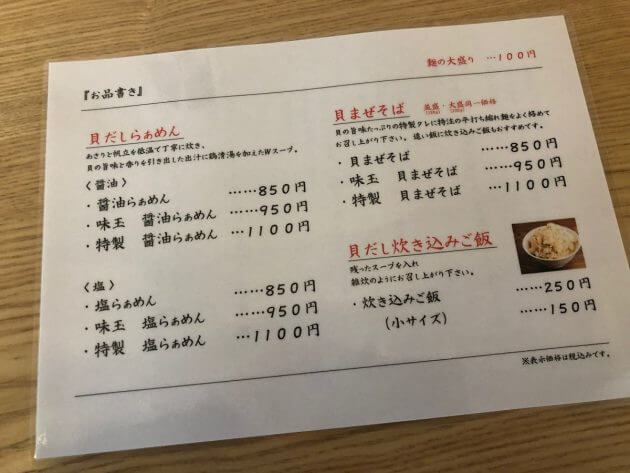 『お品書き』
麺の大盛り …100円
貝だしらぁめん
あさりと帆立を低温で丁寧に炊き、
貝の旨味と香りを引き出した出汁に鶏清湯を加えたWスープ。
〈醤油〉
・醤油らぁめん ……850円
・味玉 醤油らぁめん …950円
・特製 醤油らぁめん …1100円
〈塩〉
・塩らぁめん ……850円
・味玉 塩らぁめん …950円
・特製 塩らぁめん …1100円
貝まぜそば 並盛・大盛同一価格
貝の旨味たっぷりの特製タレに特注の平打ち縮れ麺をよく絡めて
お召し上がり下さい。追い飯に炊き込みご飯もおすすめです。
・貝まぜそば ……850円
・味玉 貝まぜそば …950円
・特製 貝まぜそば …1100円
貝だし炊き込みご飯
残ったスープを入れ
雑炊のようにお召し上がり下さい。
・炊き込みご飯 ……250円
(小サイズ) ……150円
※表示価格は税込みです。